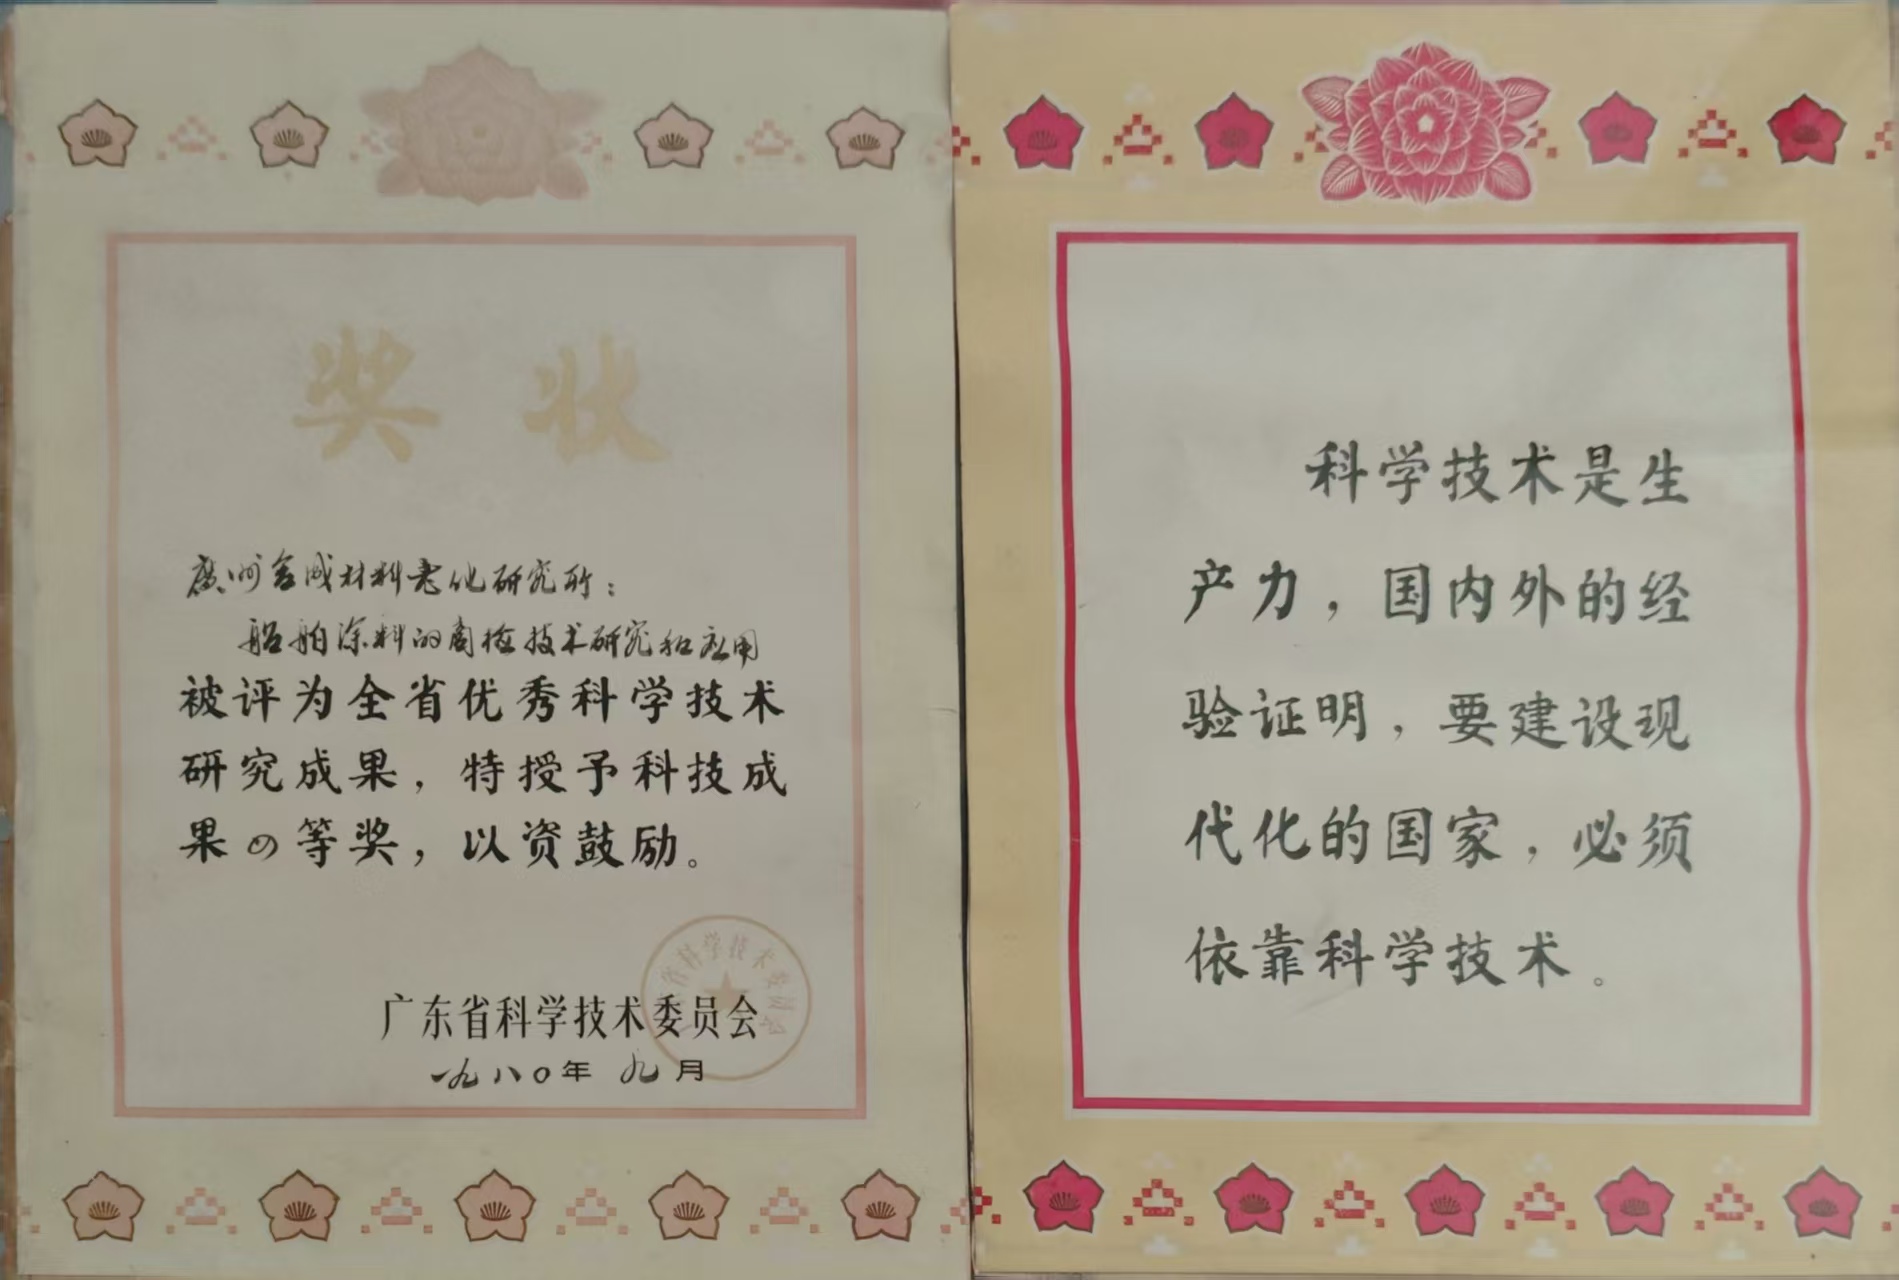 奖状
廣州合成材料老化研究所：
船舶涂料的商检技术研究和应用
被评为全省优秀科学技术
研究成果，特授予科技成
果四等奖，以资鼓励。
省科学技术委员会
广东省科学技术委员会
一九八〇年九月
科学技术是生
产力，国内外的经
验证明，要建设现
代化的国家，必须
依靠科学技术。